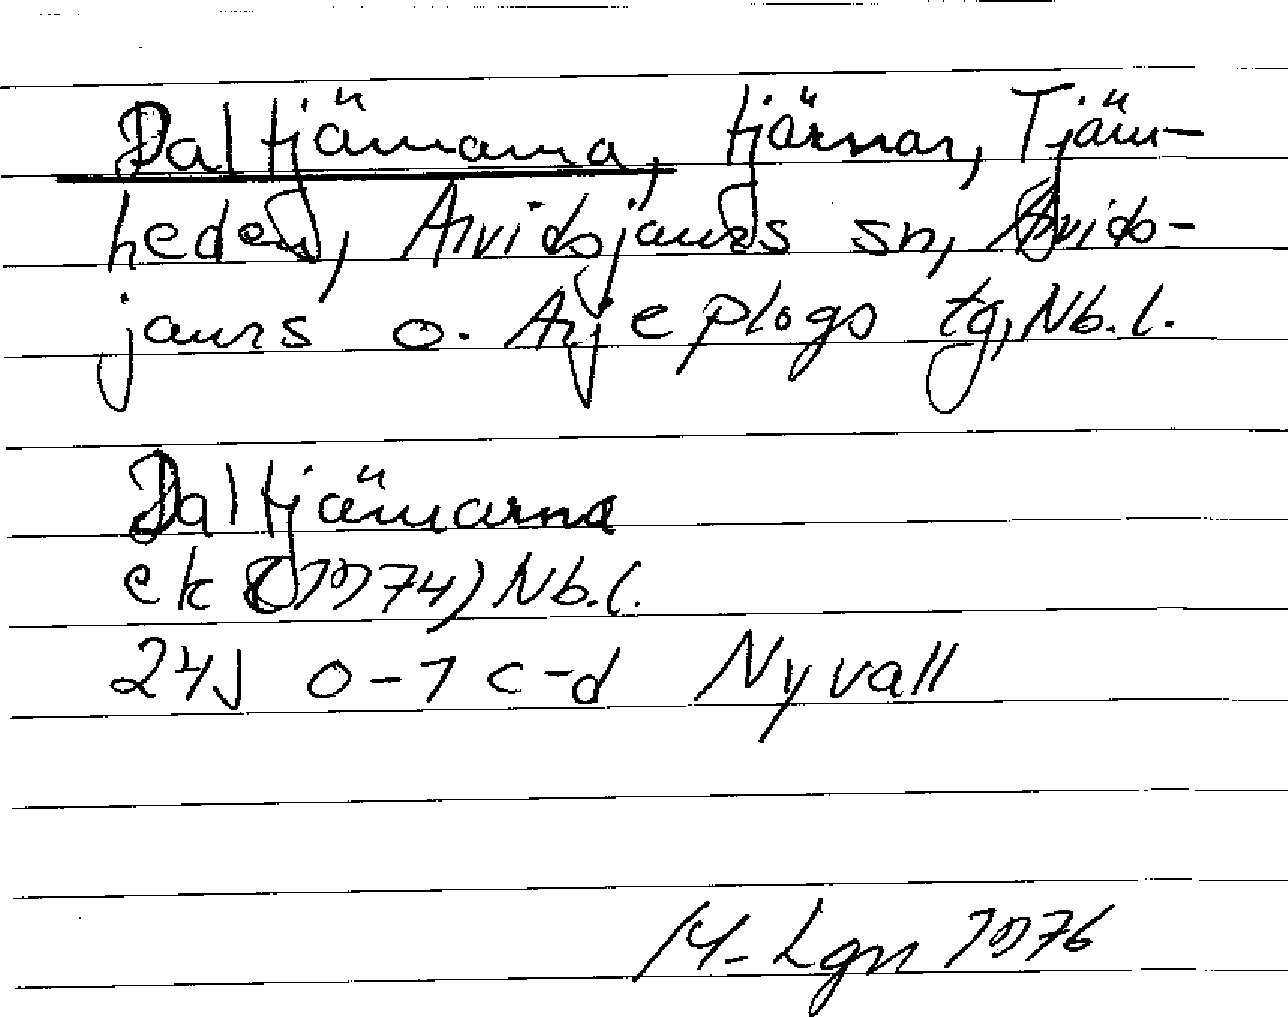 Daltjärnarna, tjärnar, Tjärn-
heden, Arvidsjaurs sn, Arvids-
jaurs o. Arjeplogs tg, Nb.l.
Daltjärnarna
ek (1974) Nb.l.
24J 0-1 c-d Nyvall
M. Lgn 1976